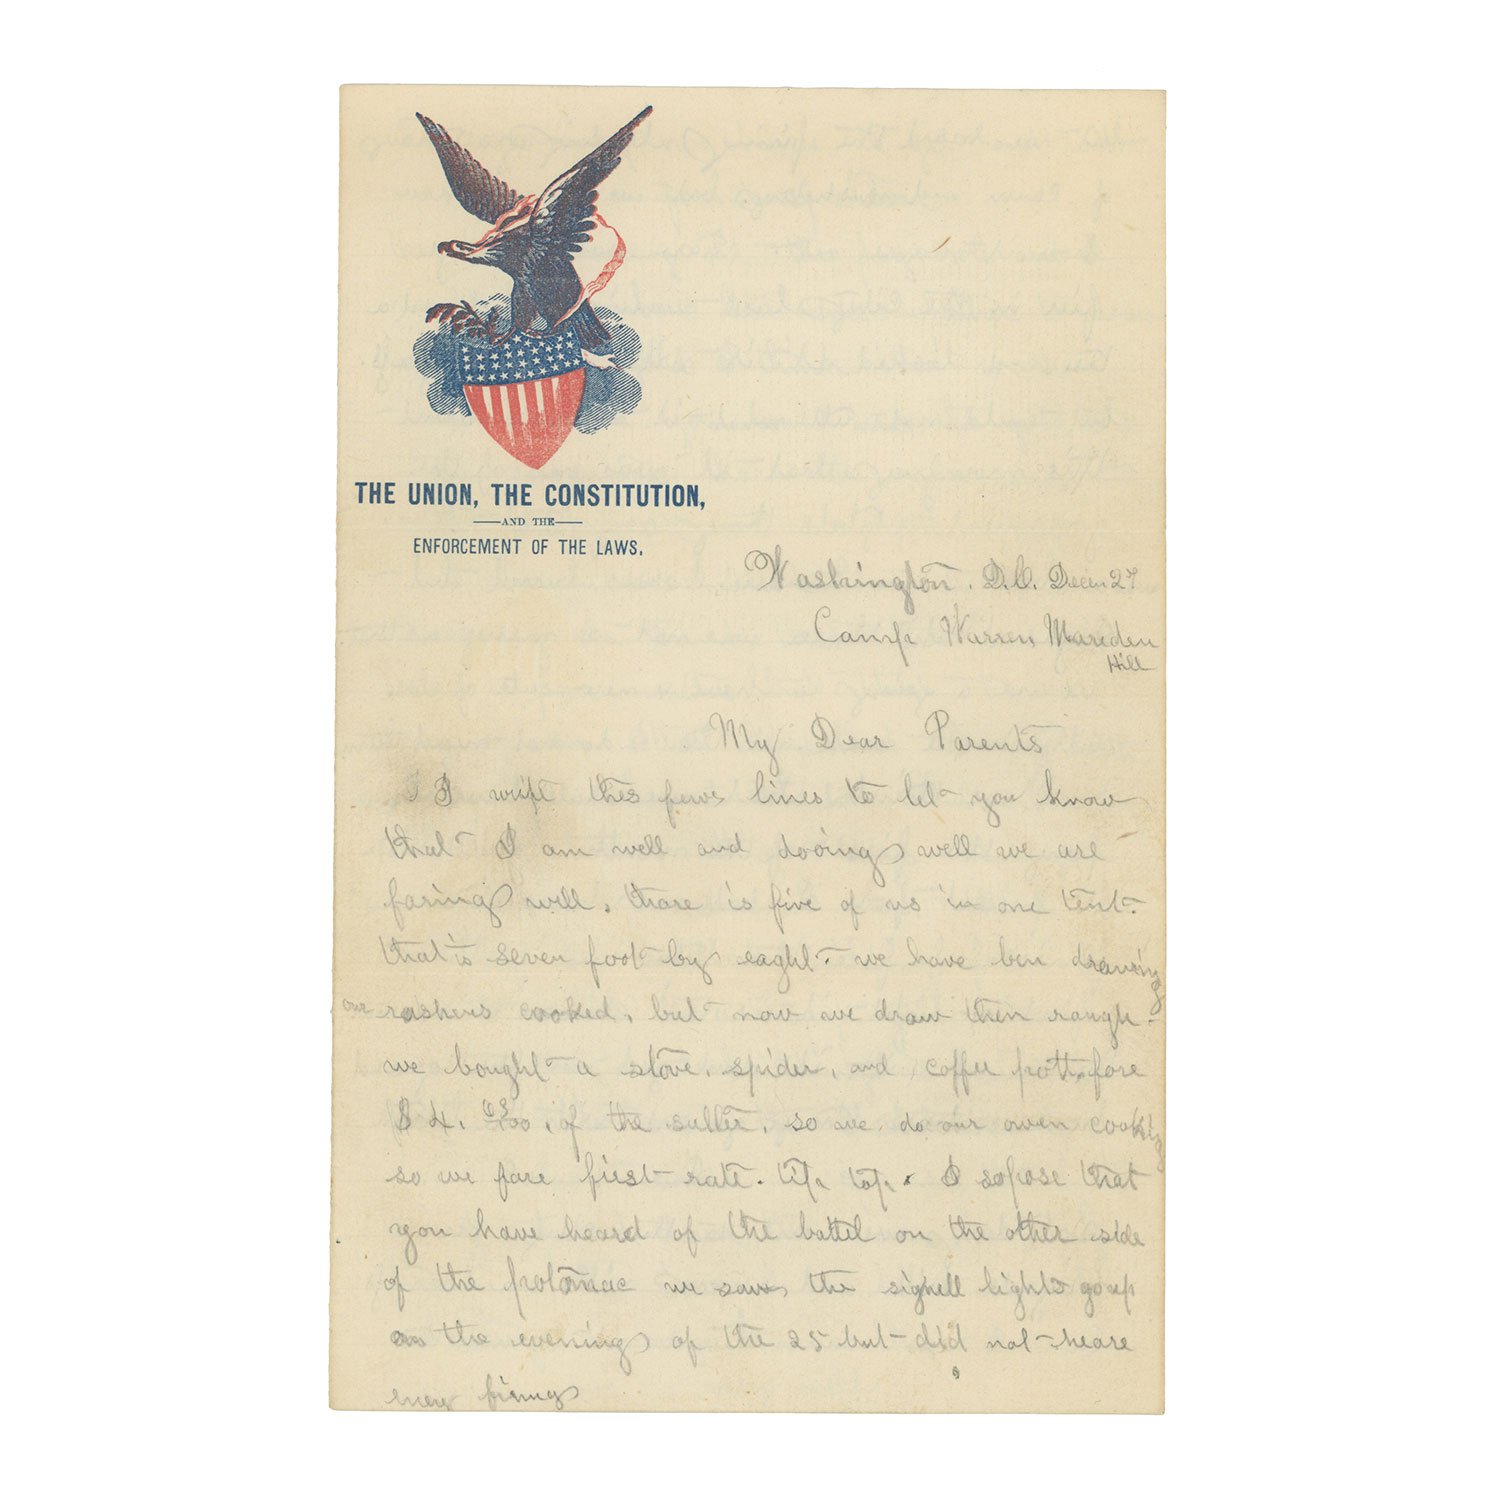 THE UNION, THE CONSTITUTION,
AND THE
ENFORCEMENT OF THE LAWS.
Washington. D.C. Decem 27
Camp Warren Mareden
Hill
My Dear Parents
I write thes fews lines to let you know
that I am well and dooing well we are
faring well. thare is five of us in one tent.
that is seven foot by eaght. we have ben drawing
our rashers cooked, but now we draw them rough.
we bought a stove, spider, and coffee pott, fore
$ 4. /00, of the sutler, so we do our owen cooking
so we fare first rate. tip top. I sopose that
you have heard of the battel on the other side
of the potomac we saw the signell lights go up
on the evening of the 25 but did not heare
eney firing